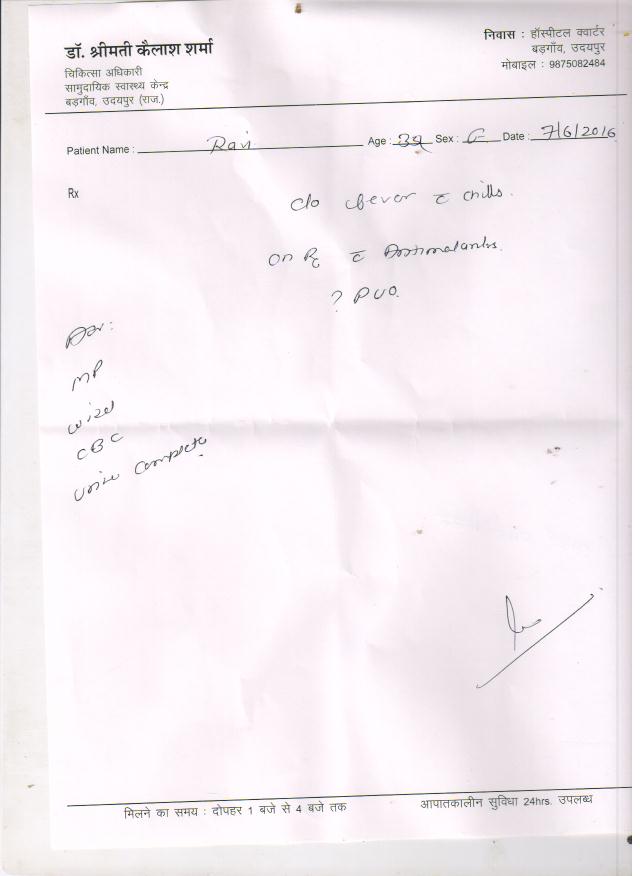 डॉ. श्रीमती कैलाश शर्मा
चिकित्सा अधिकारी
सामुदायिक स्वास्थ्य केन्द्र
बड़गाँव, उदयपुर (राज.)
निवास : हॉस्पीटल क्वार्टर
बड़गाँव, उदयपुर
मोबाइल : 9875082484
Patient Name : Ravi Age : 39 Sex : Date : 7/6/2016
Rx
c/o fever c̄ chills.
on Rx c̄ Antimalarials.
? PUO.
Adv:
MP
widal
CBC
Urine Complete
मिलने का समय : दोपहर 1 बजे से 4 बजे तक
आपातकालीन सुविधा 24hrs. उपलब्ध